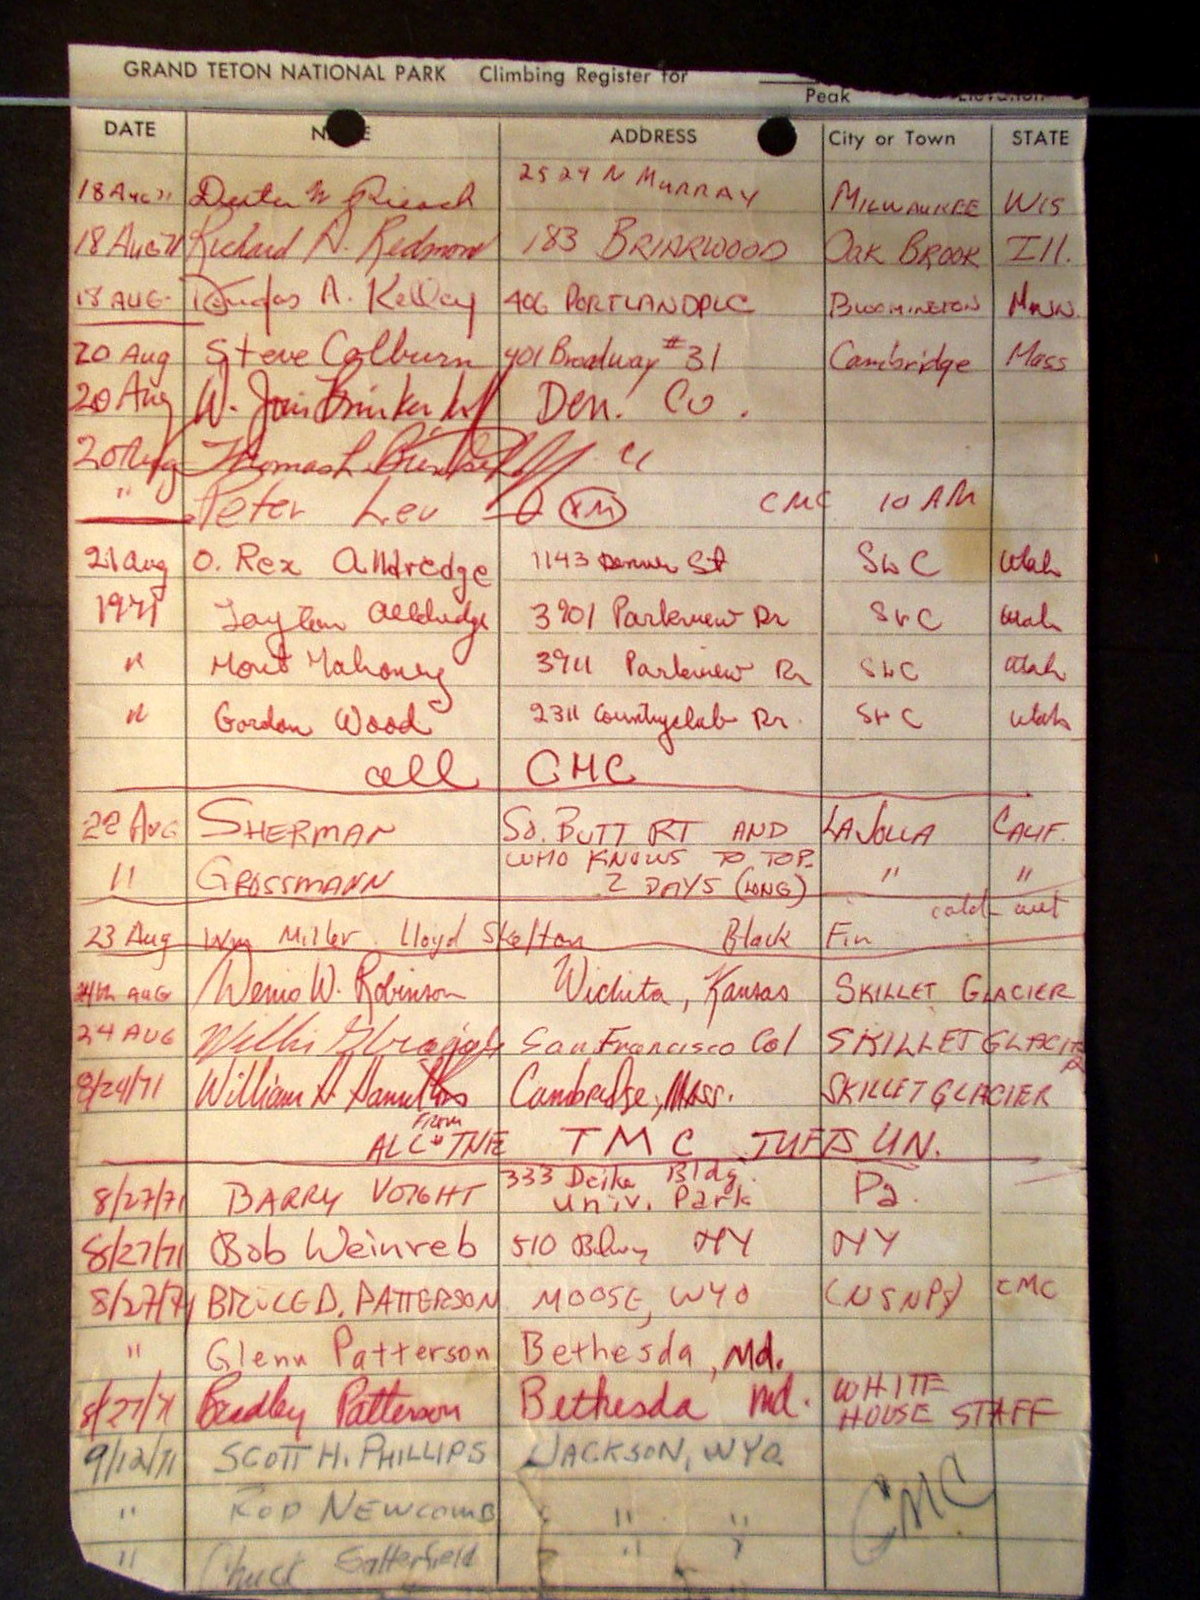 GRAND TETON NATIONAL PARK Climbing Register for
Peak Elevation
DATE NAME ADDRESS City or Town STATE
18 Aug 71 2529 N MURRAY MILWAUKEE WIS
18 Aug 71 Richard A. Redmond 183 BRIARWOOD OAK BROOK Ill.
18 AUG Douglas A. Kelley 406 PORTLAND PLC BLOOMINGTON MINN.
20 Aug Steve Colburn 401 Broadway #31 Cambridge Mass
20 Aug W. Den. Co.
20 Aug Thomas L. "
" Peter Lev CMC 10 AM
21 Aug O. Rex Alldredge 1143 St SLC Utah
1971 Layton Alldredge 3901 Parkview Dr SLC Utah
" Mont Mahoney 3911 Parkview Dr SLC Utah
" Gordon Wood 2311 Countryclub Dr. SLC Utah
all CMC
22 AUG SHERMAN SO. BUTT RT AND LA JOLLA CALIF.
WHO KNOWS TO TOP.
" GROSSMANN 2 DAYS (LONG) " "
cold wet
23 Aug Wm Miller Lloyd Skelton Black Fin
24th AUG W. Robinson Wichita, Kansas SKILLET GLACIER
24 AUG Willis San Francisco Cal SKILLET GLACIER
8/24/71 William A. Cambridge, Mass. SKILLET GLACIER
From
ALL THE TMC TUFTS UN.
8/27/71 BARRY VOIGHT 333 Deike Bldg. Pa.
Univ. Park
8/27/71 Bob Weinreb 510 Bdwy NY NY
8/27/71 BRUCE D. PATTERSON MOOSE, WYO CMC
" Glenn Patterson Bethesda, Md.
8/27/71 Bradley Patterson Bethesda Md. WHITE
HOUSE STAFF
9/12/71 SCOTT H. PHILLIPS JACKSON, WYO.
" ROD NEWCOMB " " CMC
" Chuck Satterfield " "